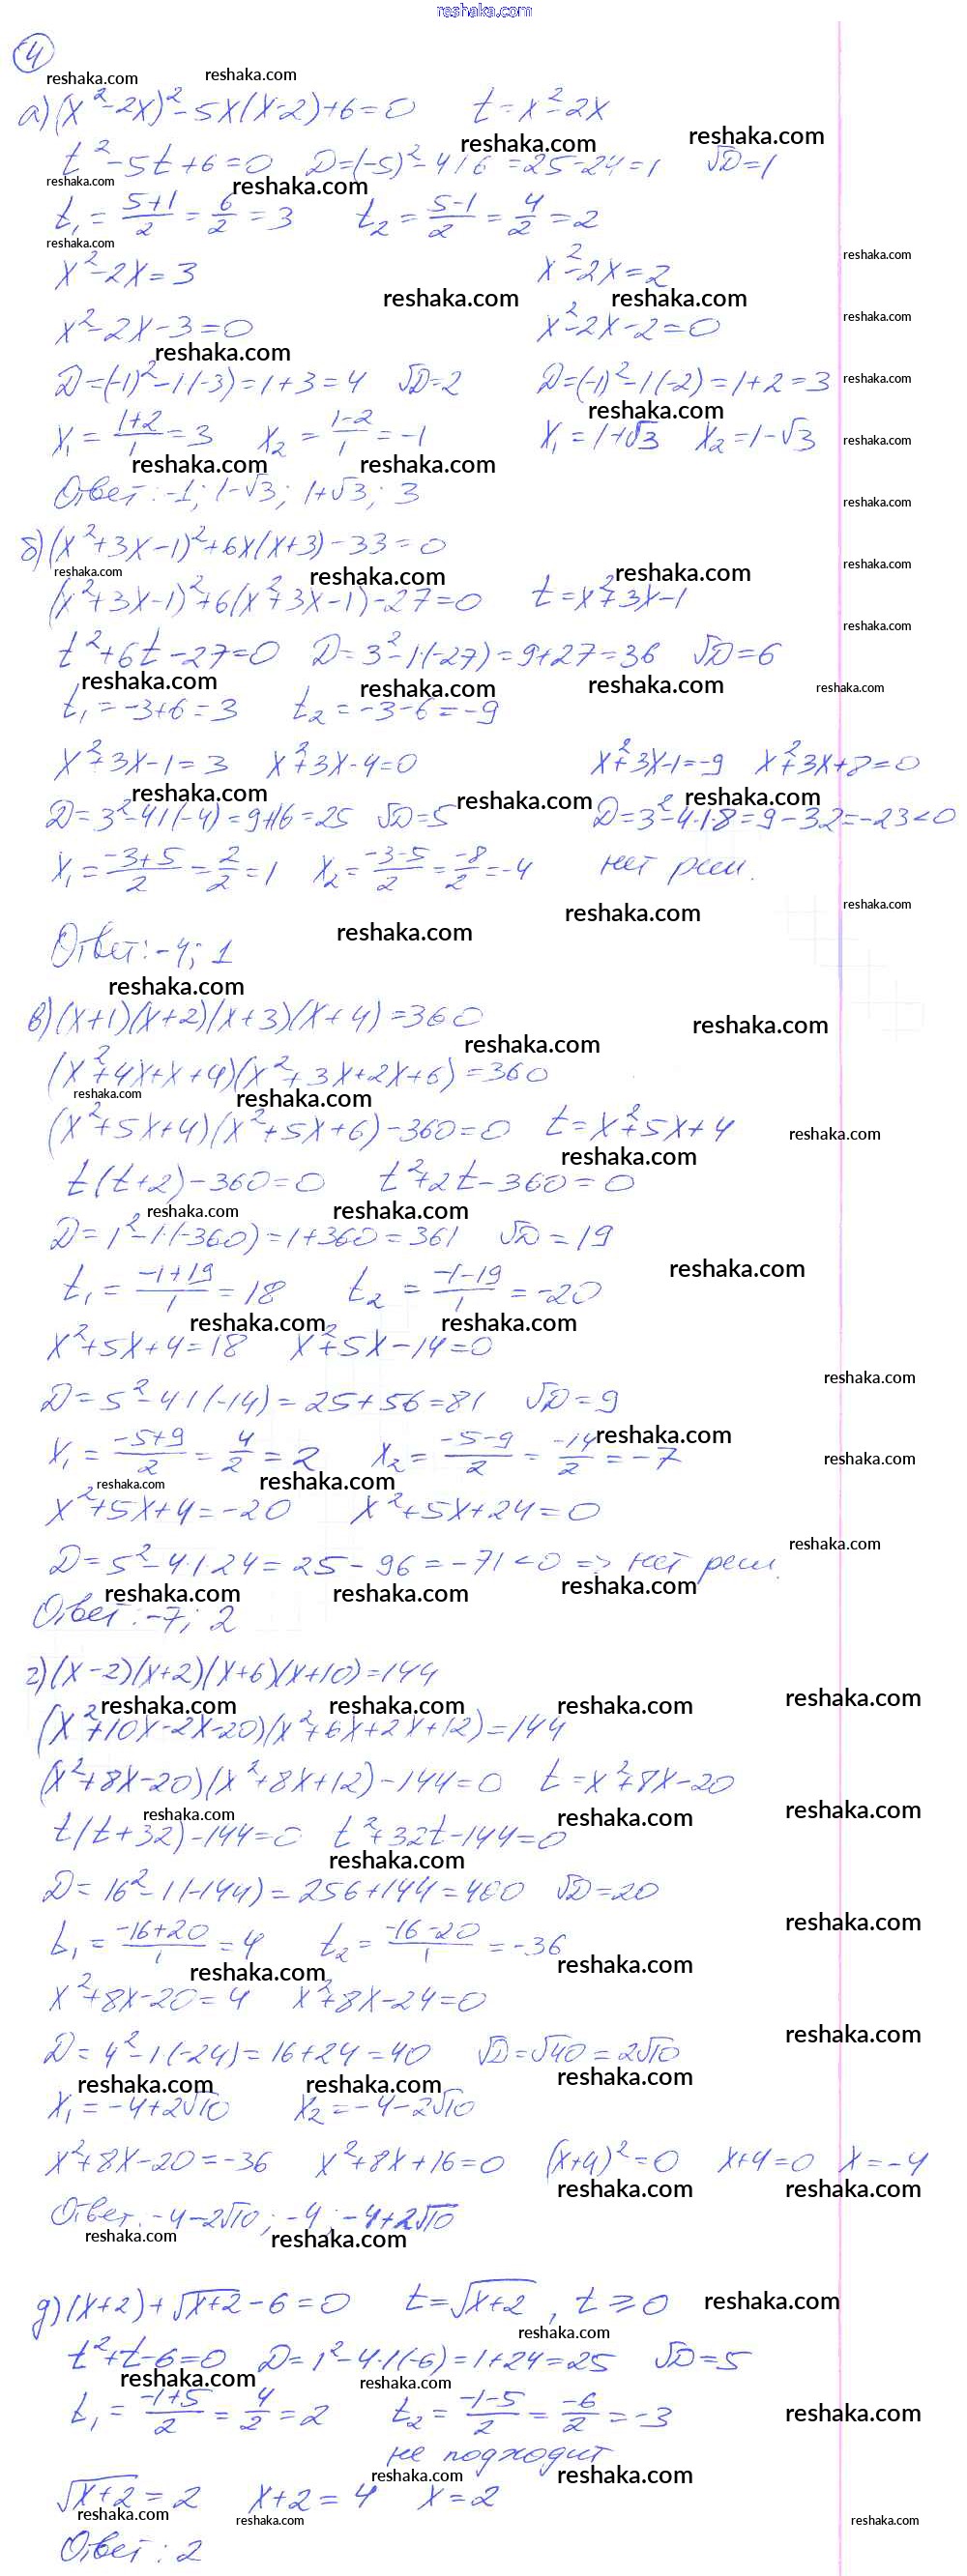 reshaka.com
4
а) (x²-2x)²-5x(x-2)+6=0 t=x²-2x
t²-5t+6=0 D=(-5)²-4·1·6=25-24=1 √D=1
t₁=(5+1)/2=6/2=3 t₂=(5-1)/2=4/2=2
x²-2x=3 x²-2x=2
x²-2x-3=0 x²-2x-2=0
D=(-1)²-1·(-3)=1+3=4 √D=2 D=(-1)²-1·(-2)=1+2=3
x₁=(1+2)/1=3 x₂=(1-2)/1=-1 x₁=1+√3 x₂=1-√3
Ответ: -1; 1-√3; 1+√3; 3
б) (x²+3x-1)²+6x(x+3)-33=0
(x²+3x-1)²+6(x²+3x-1)-27=0 t=x²+3x-1
t²+6t-27=0 D=3²-1·(-27)=9+27=36 √D=6
t₁=-3+6=3 t₂=-3-6=-9
x²+3x-1=3 x²+3x-4=0 x²+3x-1=-9 x²+3x+8=0
D=3²-4·1·(-4)=9+16=25 √D=5 D=3²-4·1·8=9-32=-23<0
x₁=(-3+5)/2=2/2=1 x₂=(-3-5)/2=-8/2=-4 нет реш.
Ответ: -4; 1
в) (x+1)(x+2)(x+3)(x+4)=360
(x²+4x+x+4)(x²+3x+2x+6)=360
(x²+5x+4)(x²+5x+6)-360=0 t=x²+5x+4
t(t+2)-360=0 t²+2t-360=0
D=1²-1·(-360)=1+360=361 √D=19
t₁=(-1+19)/1=18 t₂=(-1-19)/1=-20
x²+5x+4=18 x²+5x-14=0
D=5²-4·1·(-14)=25+56=81 √D=9
x₁=(-5+9)/2=4/2=2 x₂=(-5-9)/2=-14/2=-7
x²+5x+4=-20 x²+5x+24=0
D=5²-4·1·24=25-96=-71<0 => нет реш.
Ответ: -7; 2
г) (x-2)(x+2)(x+6)(x+10)=144
(x²+10x-2x-20)(x²+6x+2x+12)=144
(x²+8x-20)(x²+8x+12)-144=0 t=x²+8x-20
t(t+32)-144=0 t²+32t-144=0
D=16²-1·(-144)=256+144=400 √D=20
t₁=(-16+20)/1=4 t₂=(-16-20)/1=-36
x²+8x-20=4 x²+8x-24=0
D=4²-1·(-24)=16+24=40 √D=√40=2√10
x₁=-4+2√10 x₂=-4-2√10
x²+8x-20=-36 x²+8x+16=0 (x+4)²=0 x+4=0 x=-4
Ответ: -4-2√10; -4; -4+2√10
д) (x+2)+√(x+2)-6=0 t=√(x+2), t≥0
t²+t-6=0 D=1²-4·1·(-6)=1+24=25 √D=5
t₁=(-1+5)/2=4/2=2 t₂=(-1-5)/2=-6/2=-3
не подходит
√(x+2)=2 x+2=4 x=2
Ответ: 2